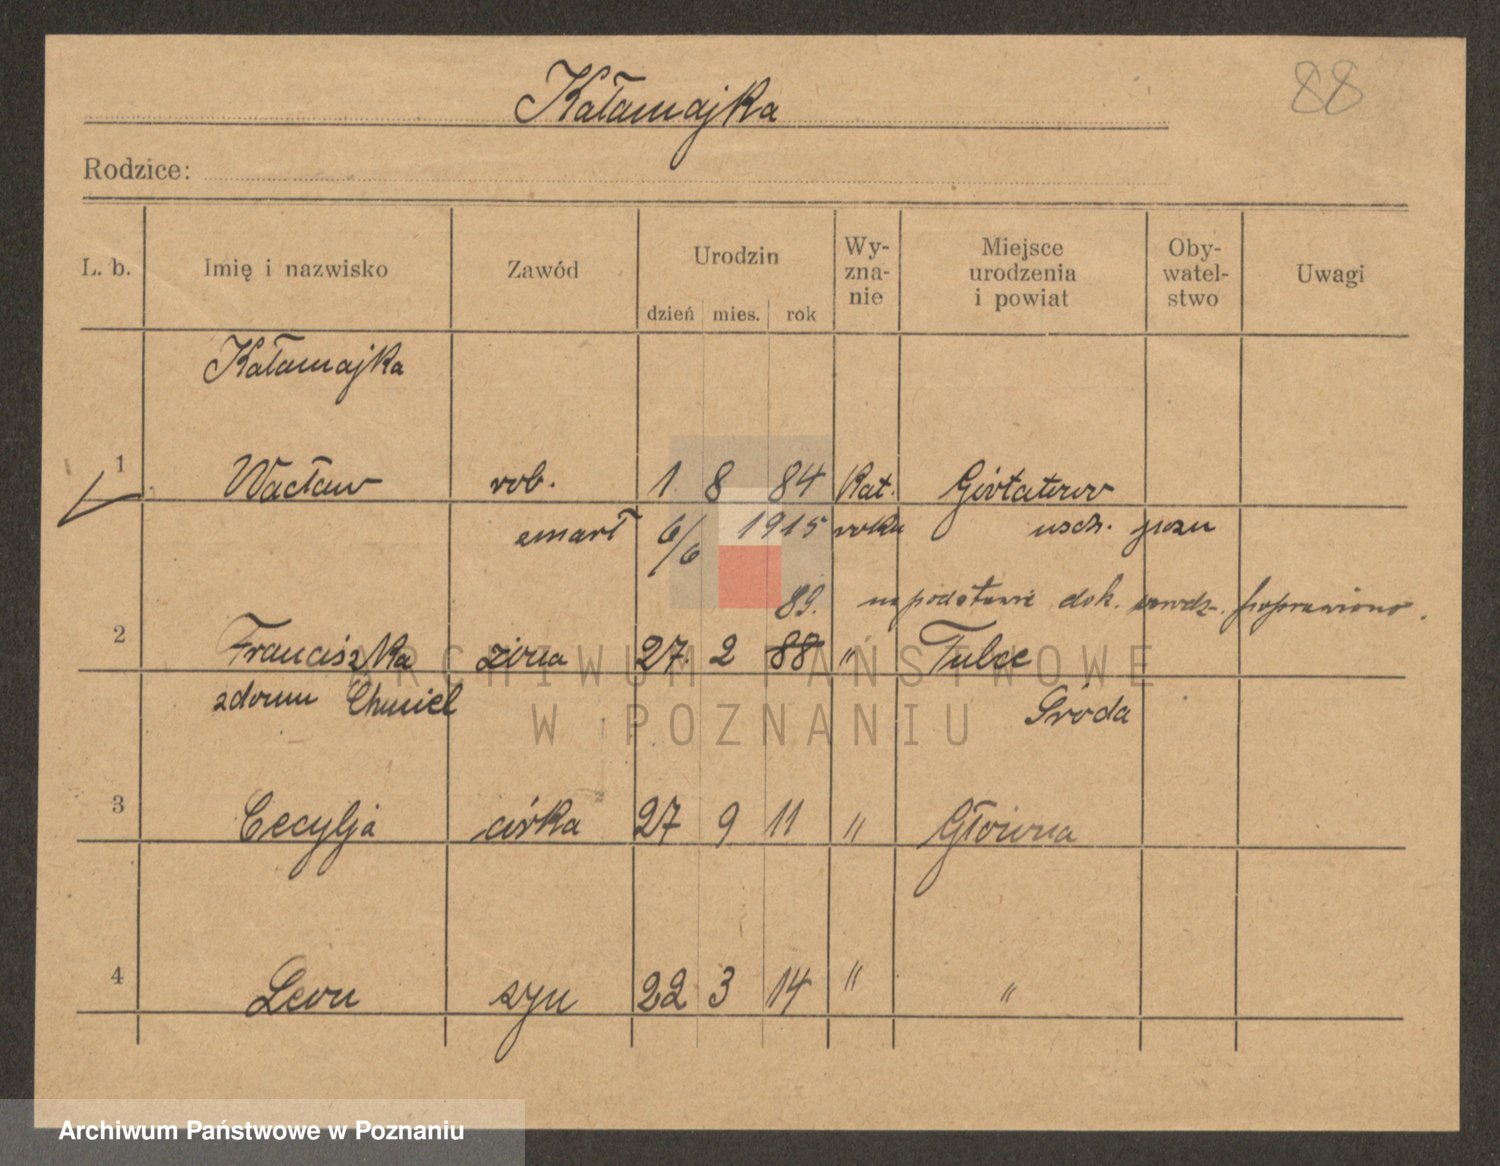 Kałamajka
88
Rodzice:
L. b. Imię i nazwisko Zawód Urodzin dzień mies. rok Wy-zna-nie Miejsce urodzenia i powiat Oby-watel-stwo Uwagi
Kałamajka
1 Wacław rob. 1 8 84 Kat.
zmarł 6/6 1915 roku wsch. pozn
89. na podstawie dok. poprawiono.
2 Franciszka żona 27. 2 88 " Tulce
zdomu Chmiel Środa
3 Cecylja córka 27 9 11 " Główna
4 Leon syn 22 3 14 " "
ARCHIWUM PAŃSTWOWE
W POZNANIU
Archiwum Państwowe w Poznaniu